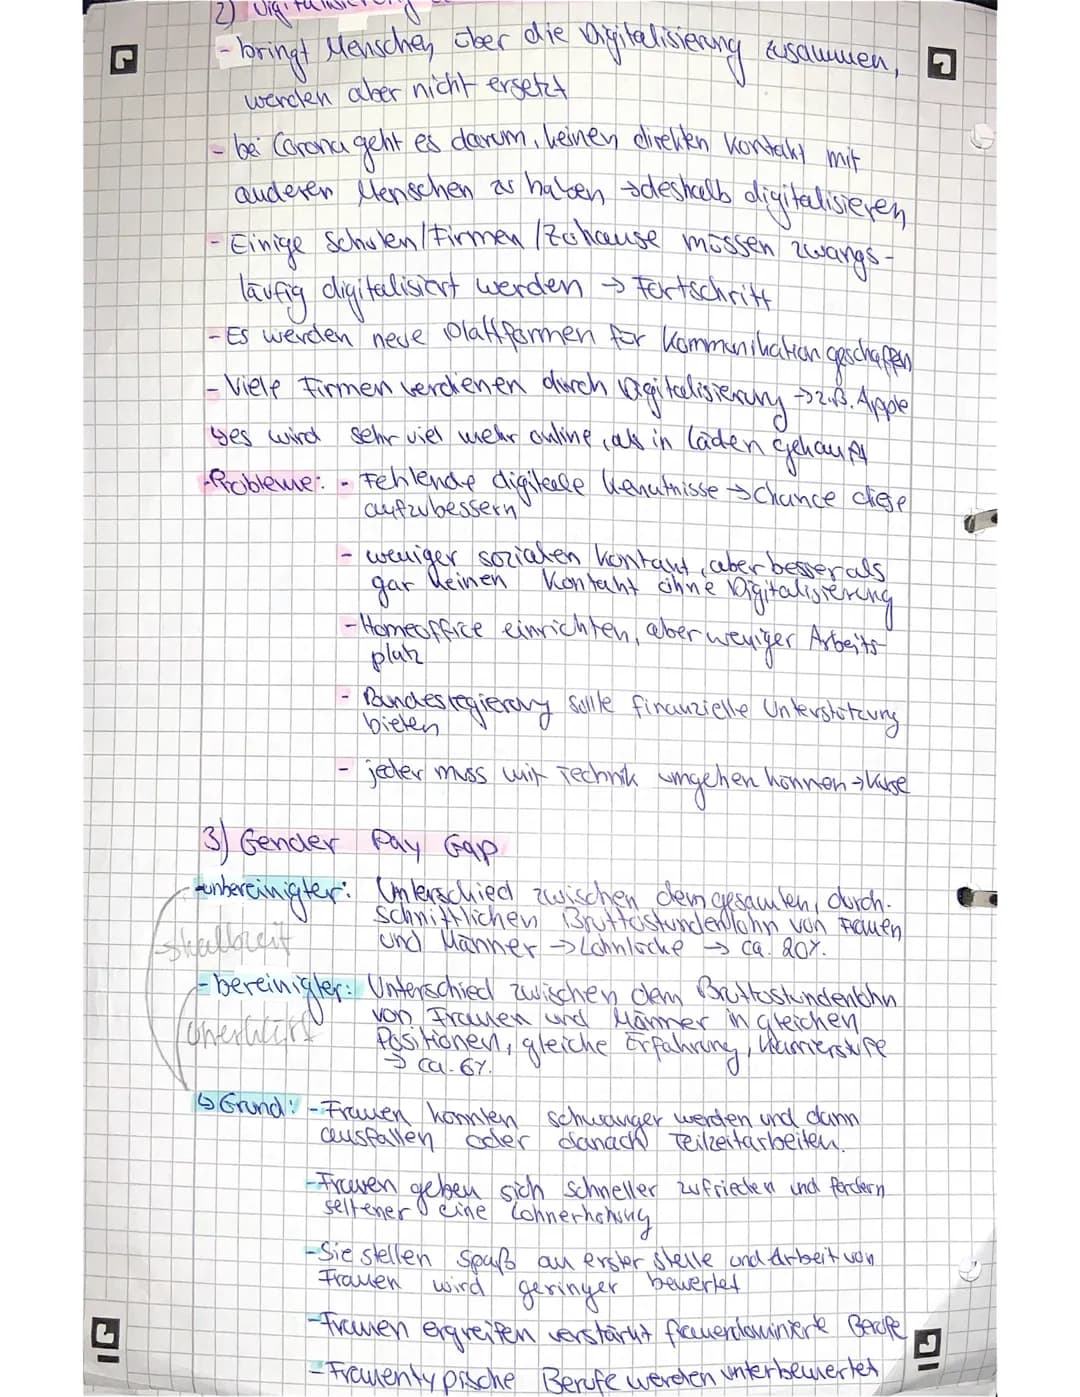 2) Digitalisierung
- bringt Menschen über die Digitalisierung zusammen,
werden aber nicht ersetzt
- bei Corona geht es darum, keinen direkten Kontakt mit
anderen Menschen zu haben → deshalb digitalisieren
- Einige Schulen/Firmen/Zuhause müssen zwangs-
läufig digitalisiert werden → Fortschritt
- Es werden neue Plattformen für Kommunikation geschaffen
- Viele Firmen verdienen durch Digitalisierung → z.B. Apple
↳ es wird sehr viel mehr online, als in Läden gekauft
- Probleme: - Fehlende digitale Kenntnisse → Chance diese
aufzubessern
- weniger sozialen Kontakt, aber besser als
gar keinen Kontakt ohne Digitalisierung
- Homeoffice einrichten, aber weniger Arbeits-
platz
- Bundesregierung sollte finanzielle Unterstützung
bieten
- jeder muss mit Technik umgehen können → Kurse
3) Gender Pay Gap
- unbereinigter: Unterschied zwischen dem gesamten, durch-
schnittlichen Bruttostundenlohn von Frauen
und Männer → Lohnlücke → ca. 20%.
- bereinigter: Unterschied zwischen dem Bruttostundenlohn
von Frauen und Männer in gleichen
Positionen, gleiche Erfahrung, Karrierstufe
→ ca. 6%.
↳ Grund: - Frauen könnten schwanger werden und dann
ausfallen oder danach Teilzeitarbeiten.
- Frauen geben sich schneller zufrieden und fordern
seltener eine Lohnerhöhung
- Sie stellen Spaß an erster Stelle und Arbeit von
Frauen wird geringer bewertet
- Frauen ergreifen verstärkt frauendominierte Berufe
- Frauentypische Berufe werden unterbewertet